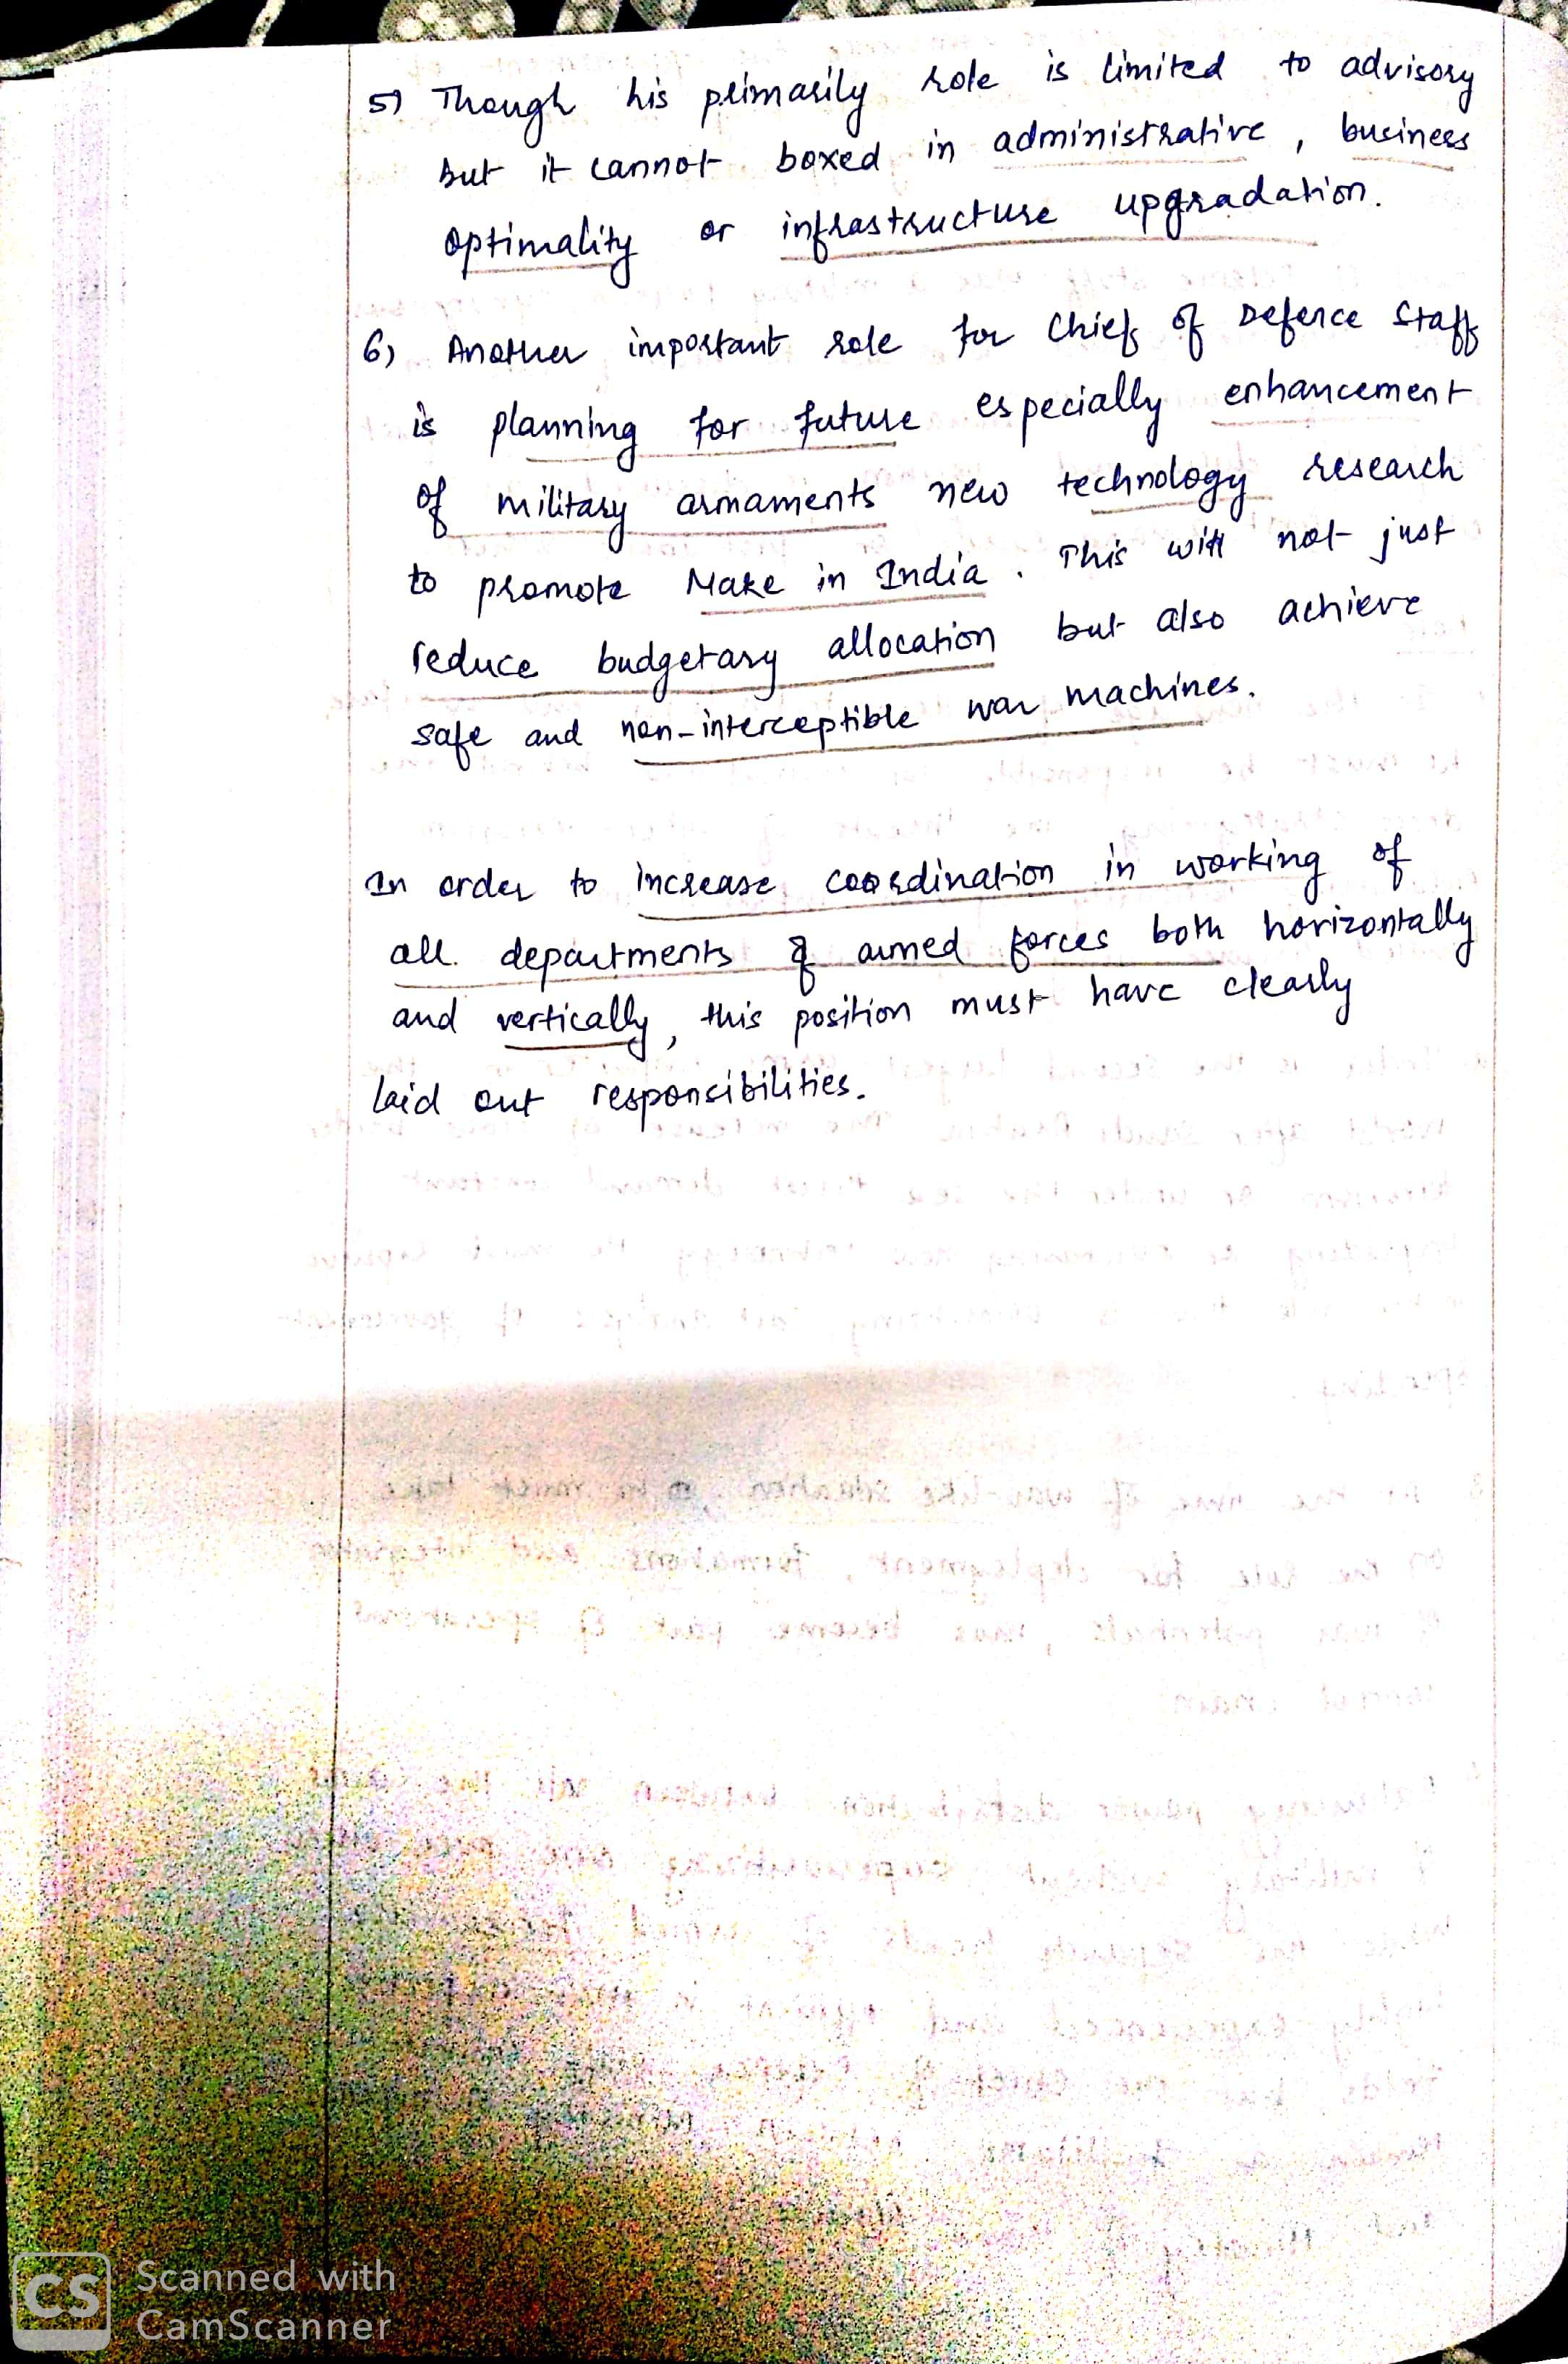 5) Though his primarily role is limited to advisory
but it cannot boxed in administrative, business
optimality or infrastructure upgradation.
6) Another important role for Chief of Defence Staff
is planning for future especially enhancement
of military armaments new technology research
to promote Make in India. This will not just
reduce budgetary allocation but also achieve
safe and non-interceptible war machines.
In order to increase coordination in working of
all departments of armed forces both horizontally
and vertically, this position must have clearly
laid out responsibilities.
CS Scanned with
CamScanner